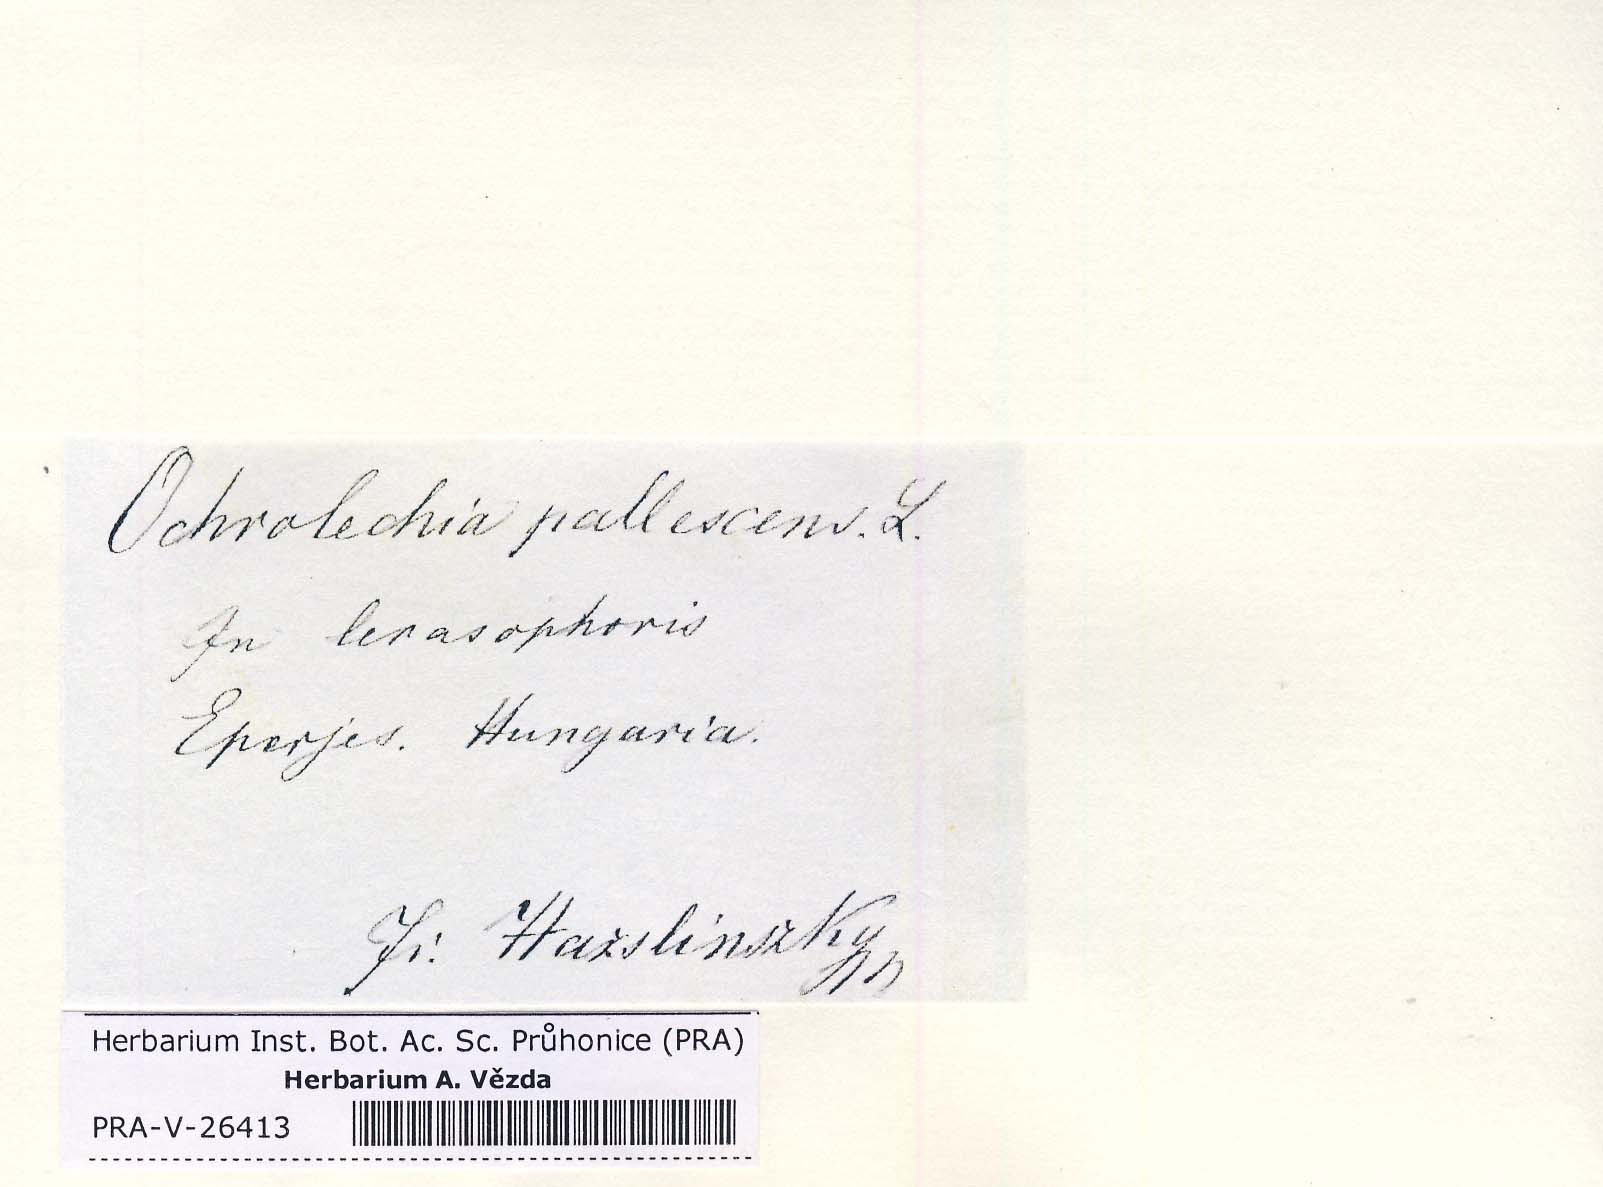 Ochrolechia pallescens. L.
In cerasophoris
Eperjes. Hungaria.
Fr. Hazslinszky
Herbarium Inst. Bot. Ac. Sc. Průhonice (PRA)
Herbarium A. Vězda
PRA-V-26413